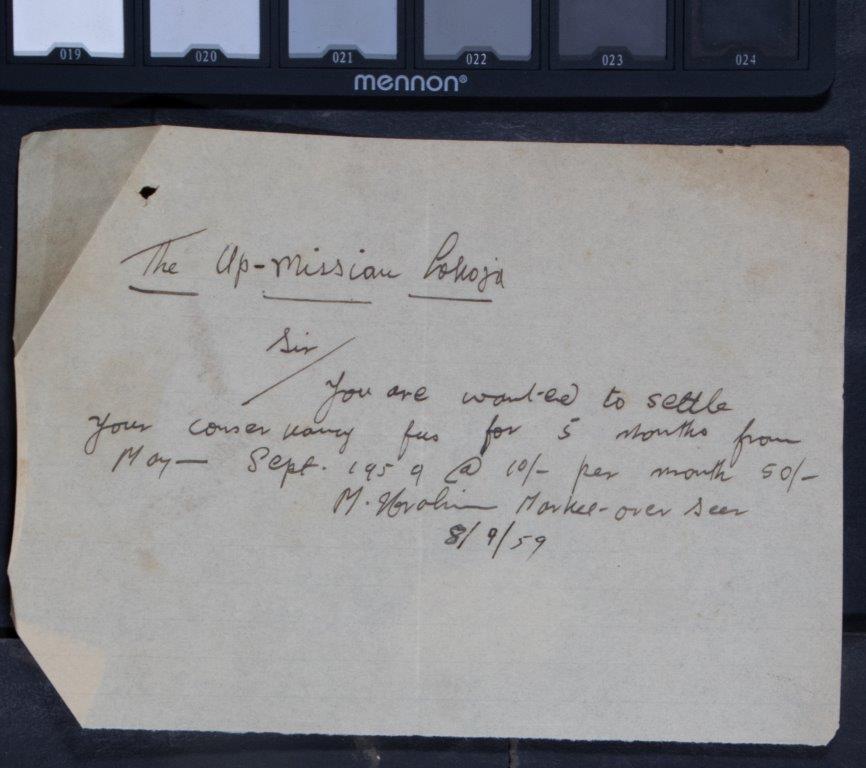 019 020 021 022 023 024
mennon®
The Up-Mission Lokoja
Sir/
You are wanted to settle
your conservancy fees for 5 months from
May— Sept. 1959 @ 10/- per month 50/-
M. Ibrahim Market-over seer
8/9/59